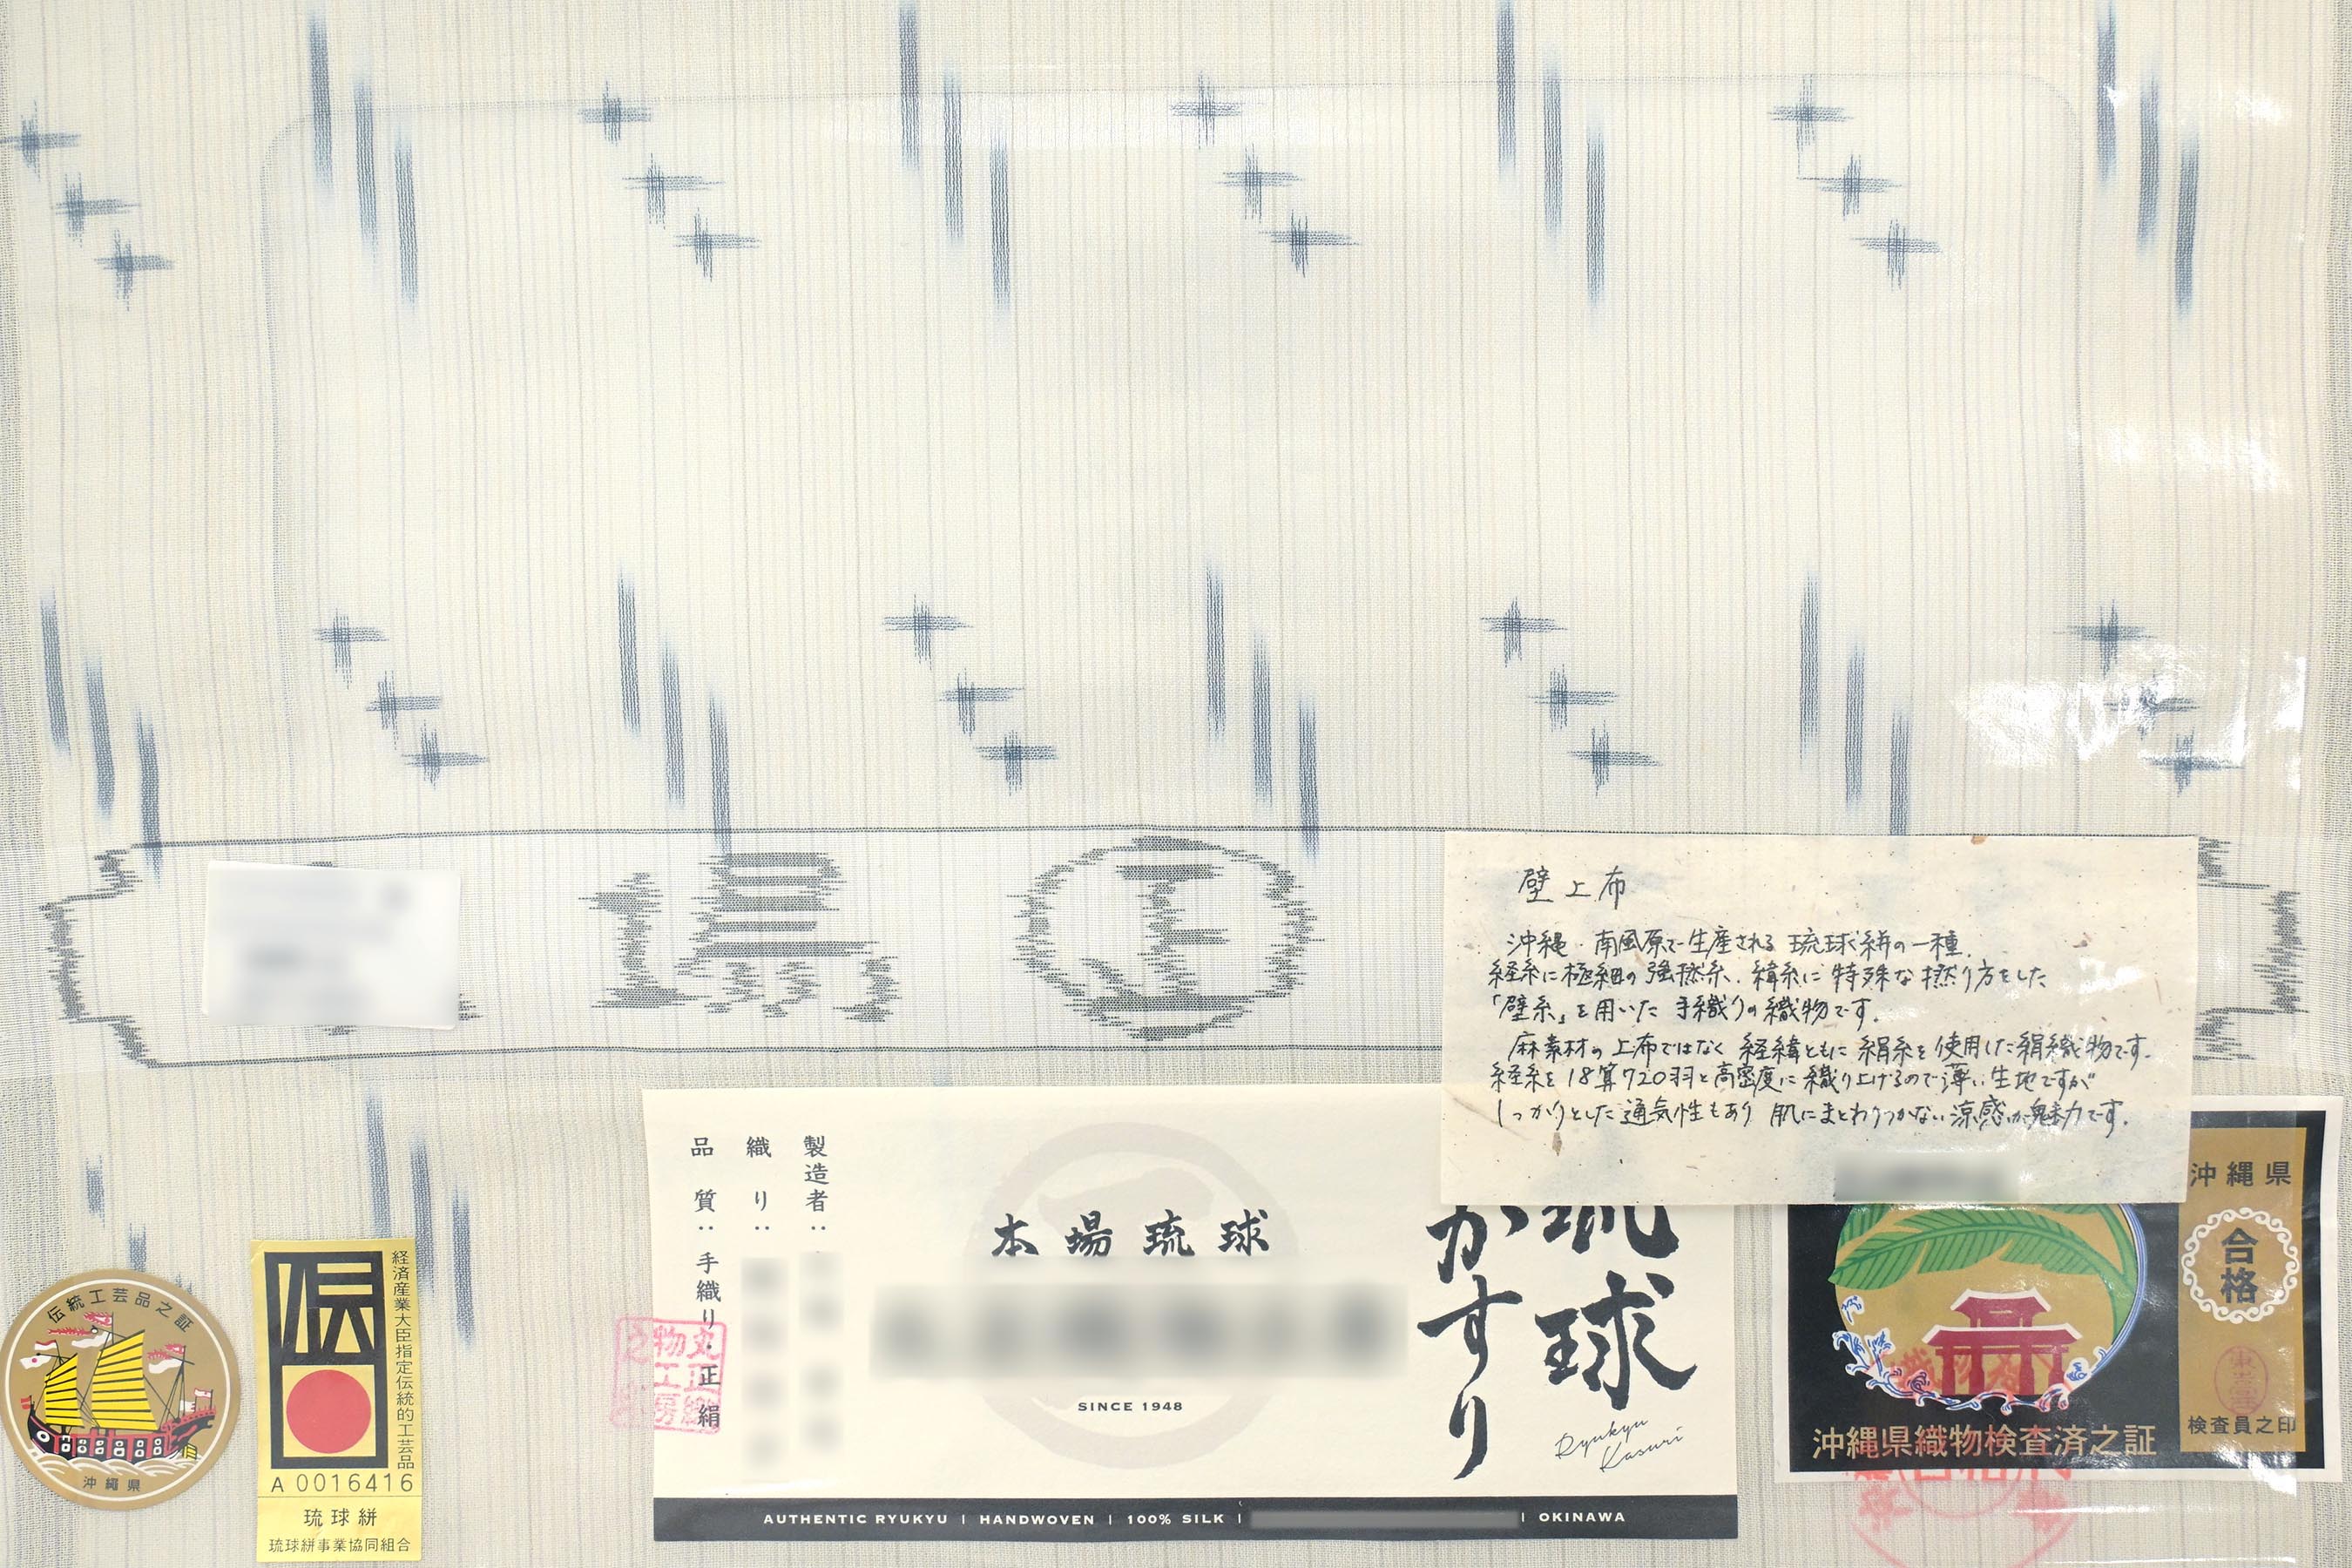 壁上布
沖縄・南風原で生産される琉球絣の一種。
経糸に極細の強撚糸、緯糸に特殊な撚り方をした
「壁糸」を用いた手織りの織物です。
麻素材の上布ではなく経緯ともに絹糸を使用した絹織物です。
経糸を18算720羽と高密度に織り上げるので薄い生地ですが
しっかりとした通気性もあり肌にまとわりつかない涼感が魅力です。
琉球
かすり
Ryukyu
Kasuri
本場琉球
SINCE 1948
製造者:
織り:
品質:手織り・正絹
AUTHENTIC RYUKYU | HANDWOVEN | 100% SILK |
| OKINAWA
伝統工芸品之証
沖縄県
伝
経済産業大臣指定伝統的工芸品
A 0016416
琉球絣
琉球絣事業協同組合
沖縄県
合格
検査員之印
沖縄県織物検査済之証